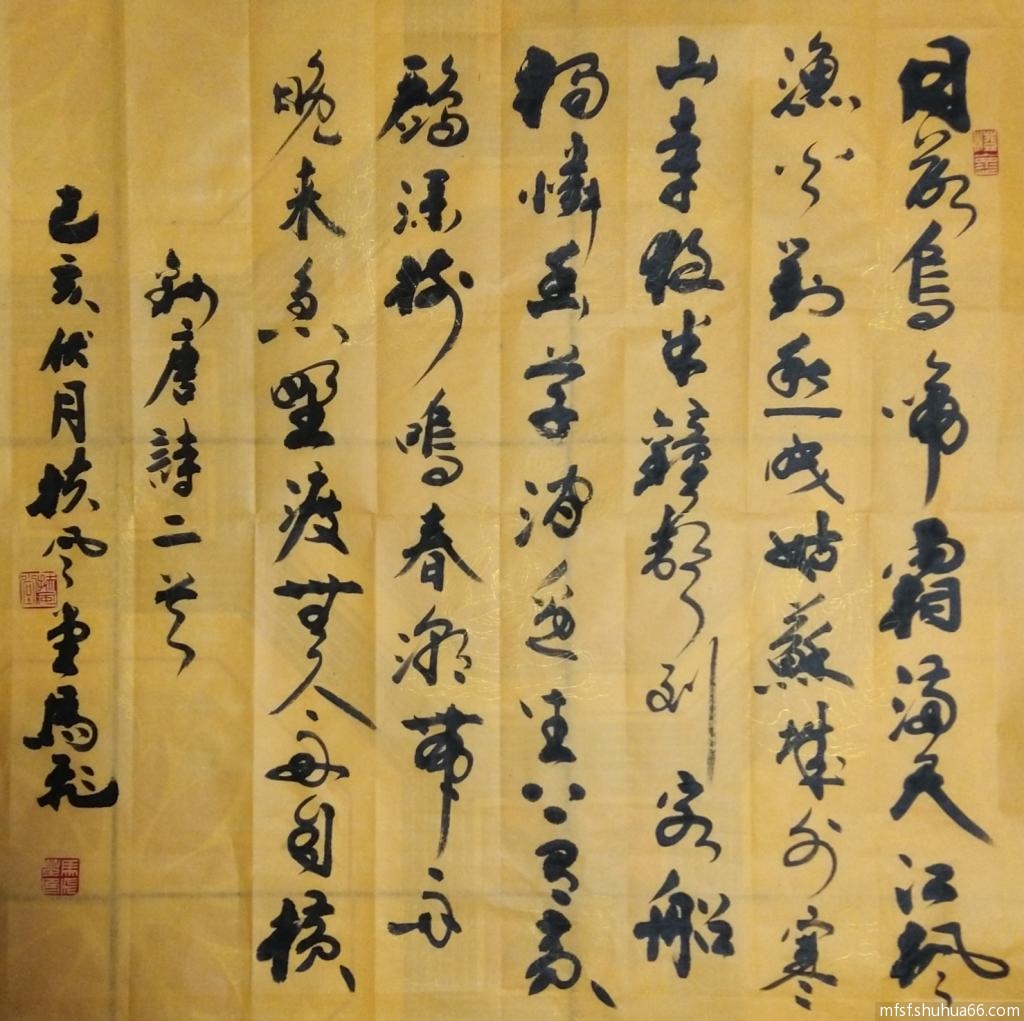 月落烏啼霜滿天江楓
漁火對愁眠姑蘇城外寒
山寺夜半鐘聲到客船
獨憐幽草澗邊生上有黃
鸝深樹鳴春潮帶雨
晚來急野渡無人舟自橫
錄唐詩二首
己亥伏月扶風堂馬
mfsf.shuhua66.com